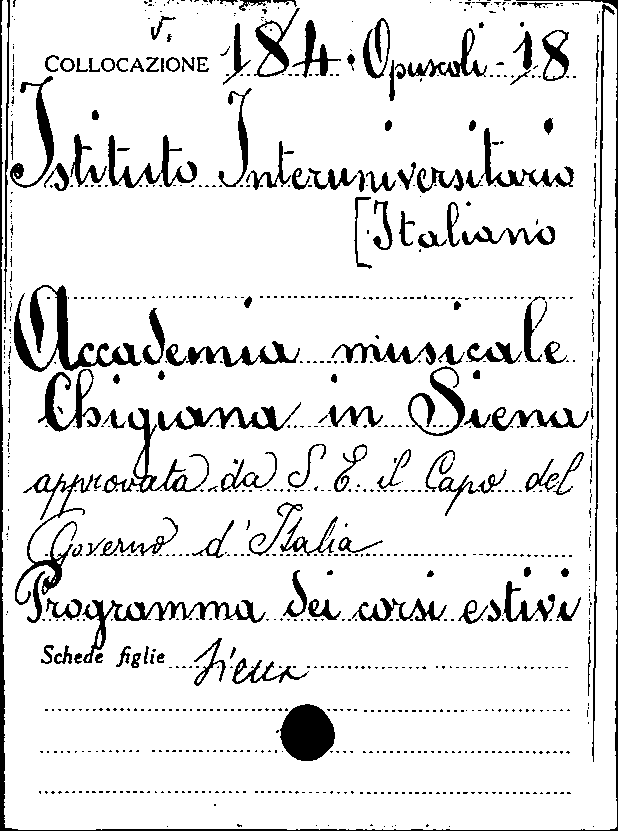 V.
COLLOCAZIONE 184. Opuscoli - 18
Istituto Interuniversitario
[Italiano
Accademia musicale
Chigiana in Siena
approvata da S. E. il Capo del
Governo d'Italia
Programma dei corsi estivi
Schede figlie Siena